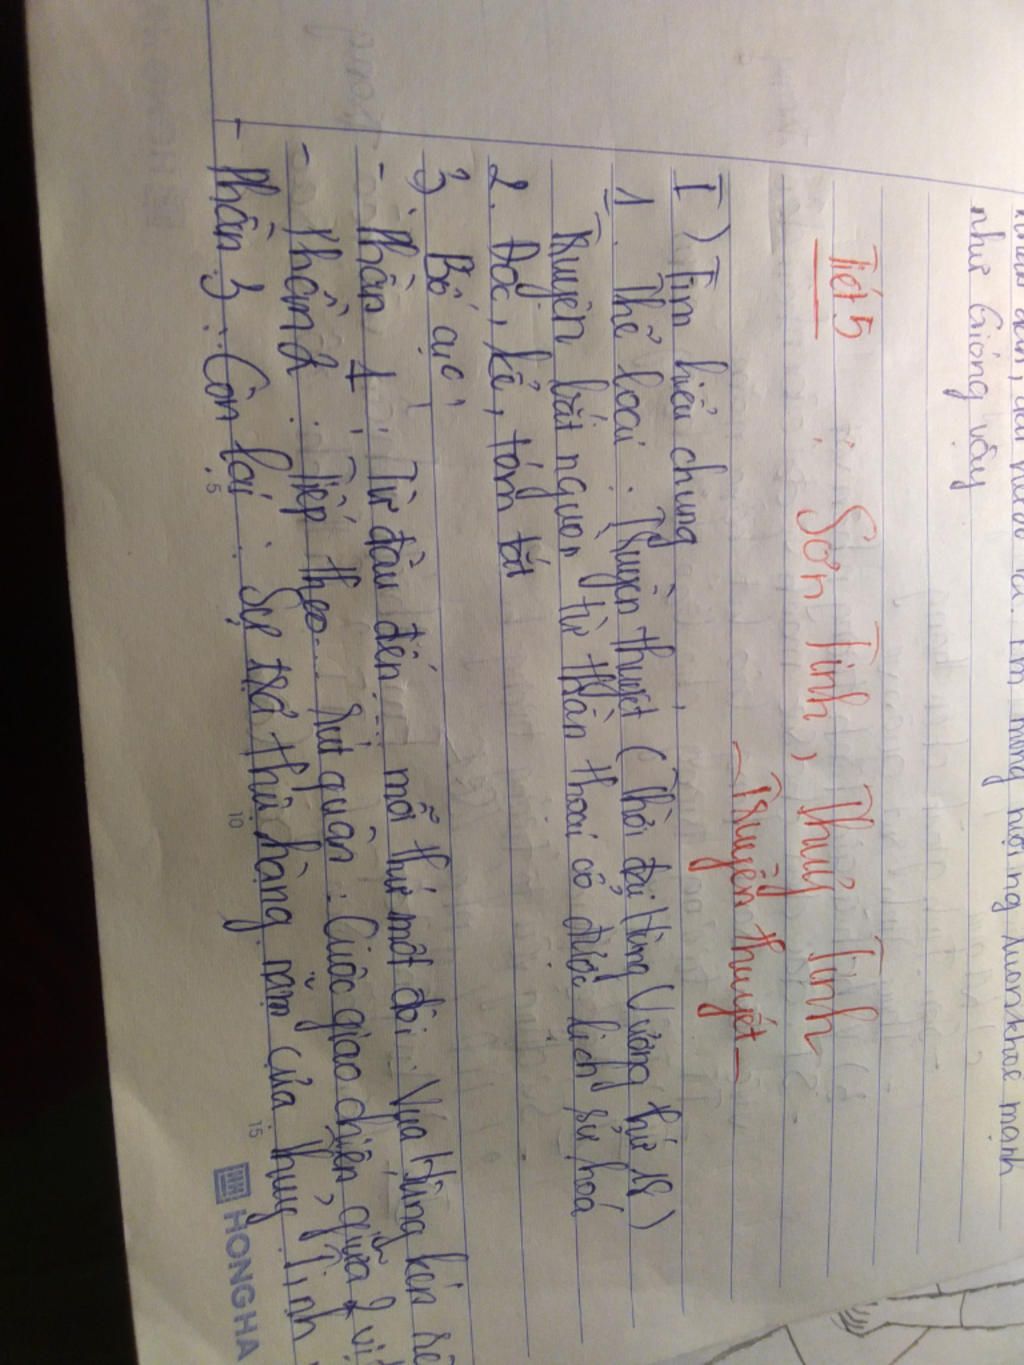 như Gióng vậy
Tiết 5
Sơn Tinh, Thuỷ Tinh
- Truyền thuyết -
I) Tìm hiểu chung
1. Thể loại: Truyền thuyết (Thời đại Hùng Vương thứ 18)
Truyện bắt nguồn từ thần thoại cổ được lịch sử hoá
2. Đọc, kể, tóm tắt
3. Bố cục
- Phần 1: Từ đầu đến... mỗi thứ một đôi: Vua Hùng kén rể
- Phần 2: Tiếp theo... rút quân: Cuộc giao chiến giữa 2 vị
- Phần 3: Còn lại: Sự trả thù hàng năm của Thuỷ Tinh
5 10 15
HONG HA